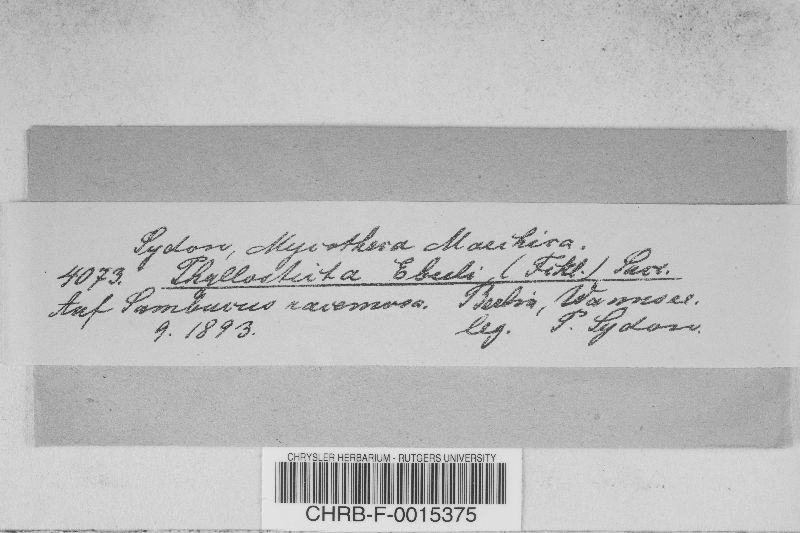 Sydow, Mycotheca Marchica.
4073. Phyllosticta Ebuli (Fckl.) Sacc.
Auf Sambucus racemosa. Berlin, Wannsee.
9. 1893. leg. P. Sydow.
CHRYSLER HERBARIUM - RUTGERS UNIVERSITY
CHRB-F-0015375